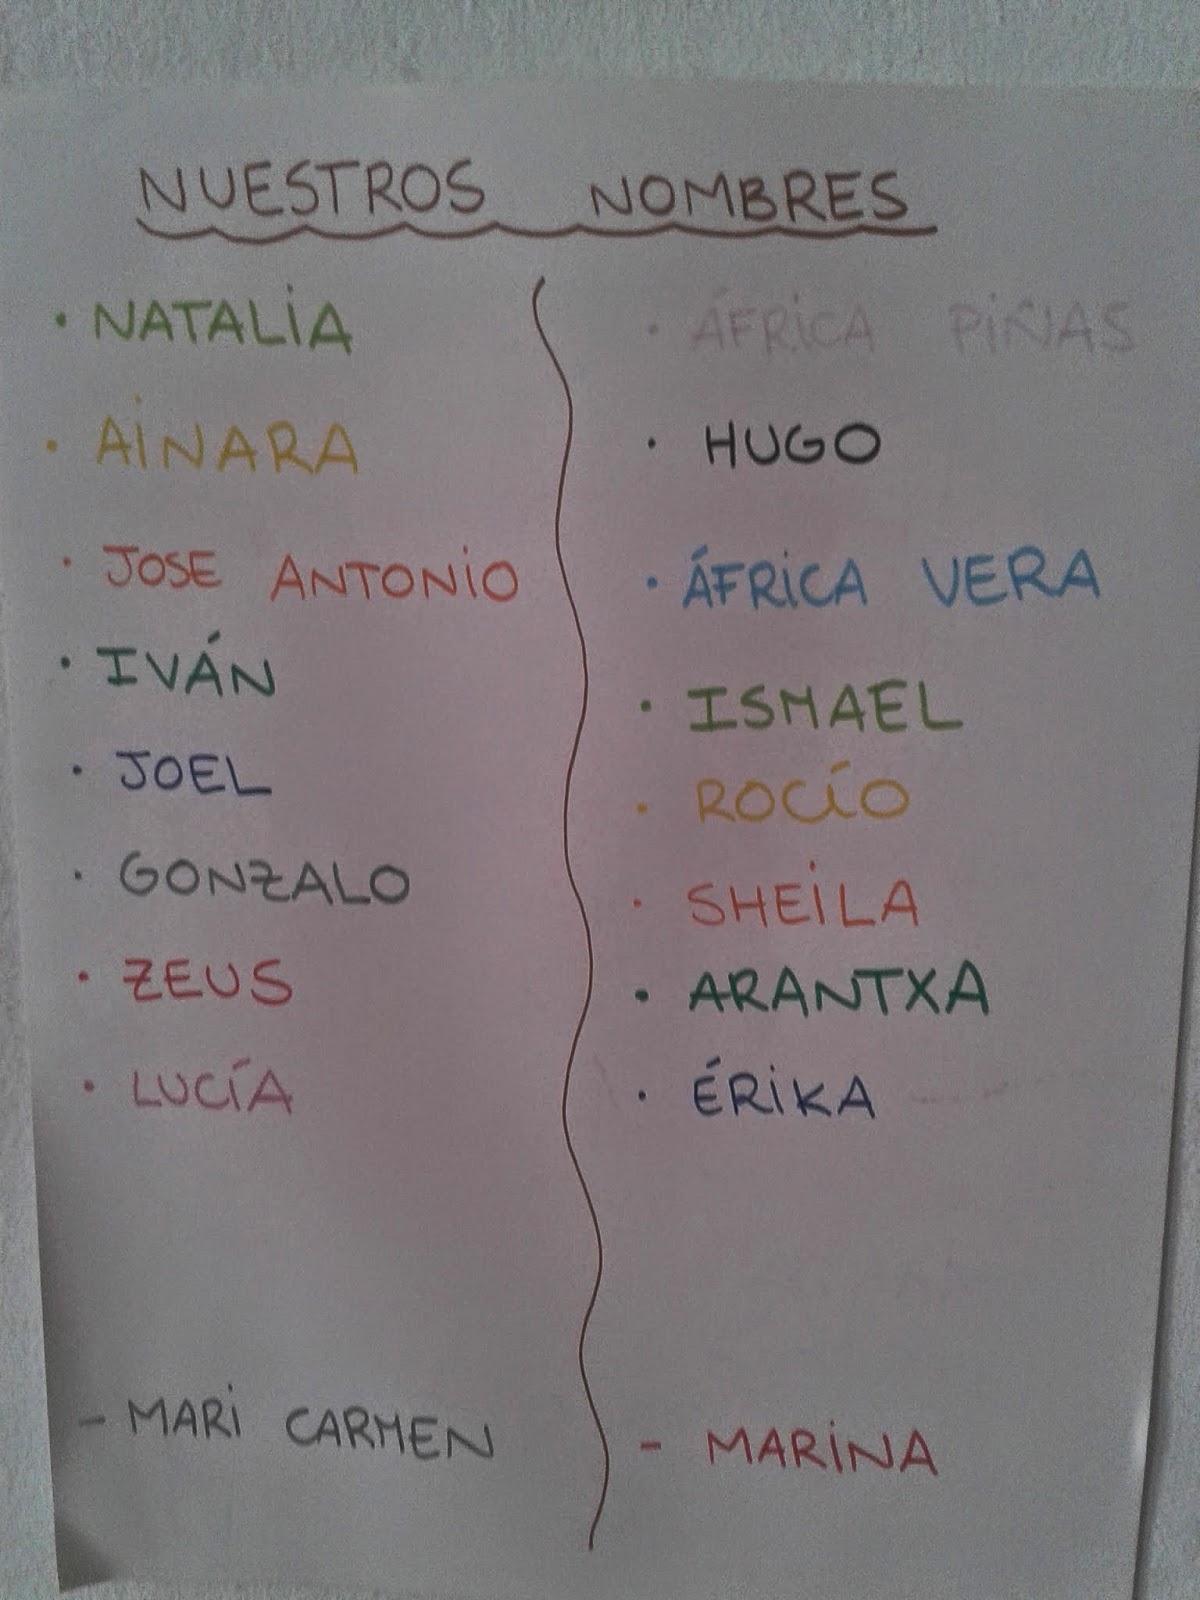 NUESTROS NOMBRES
· NATALIA
· AINARA
· JOSE ANTONIO
· IVÁN
· JOEL
· GONZALO
· ZEUS
· LUCÍA
- MARI CARMEN
· ÁFRICA PIÑAS
· HUGO
· ÁFRICA VERA
· ISMAEL
· ROCÍO
· SHEILA
· ARANTXA
· ÉRIKA
- MARINA